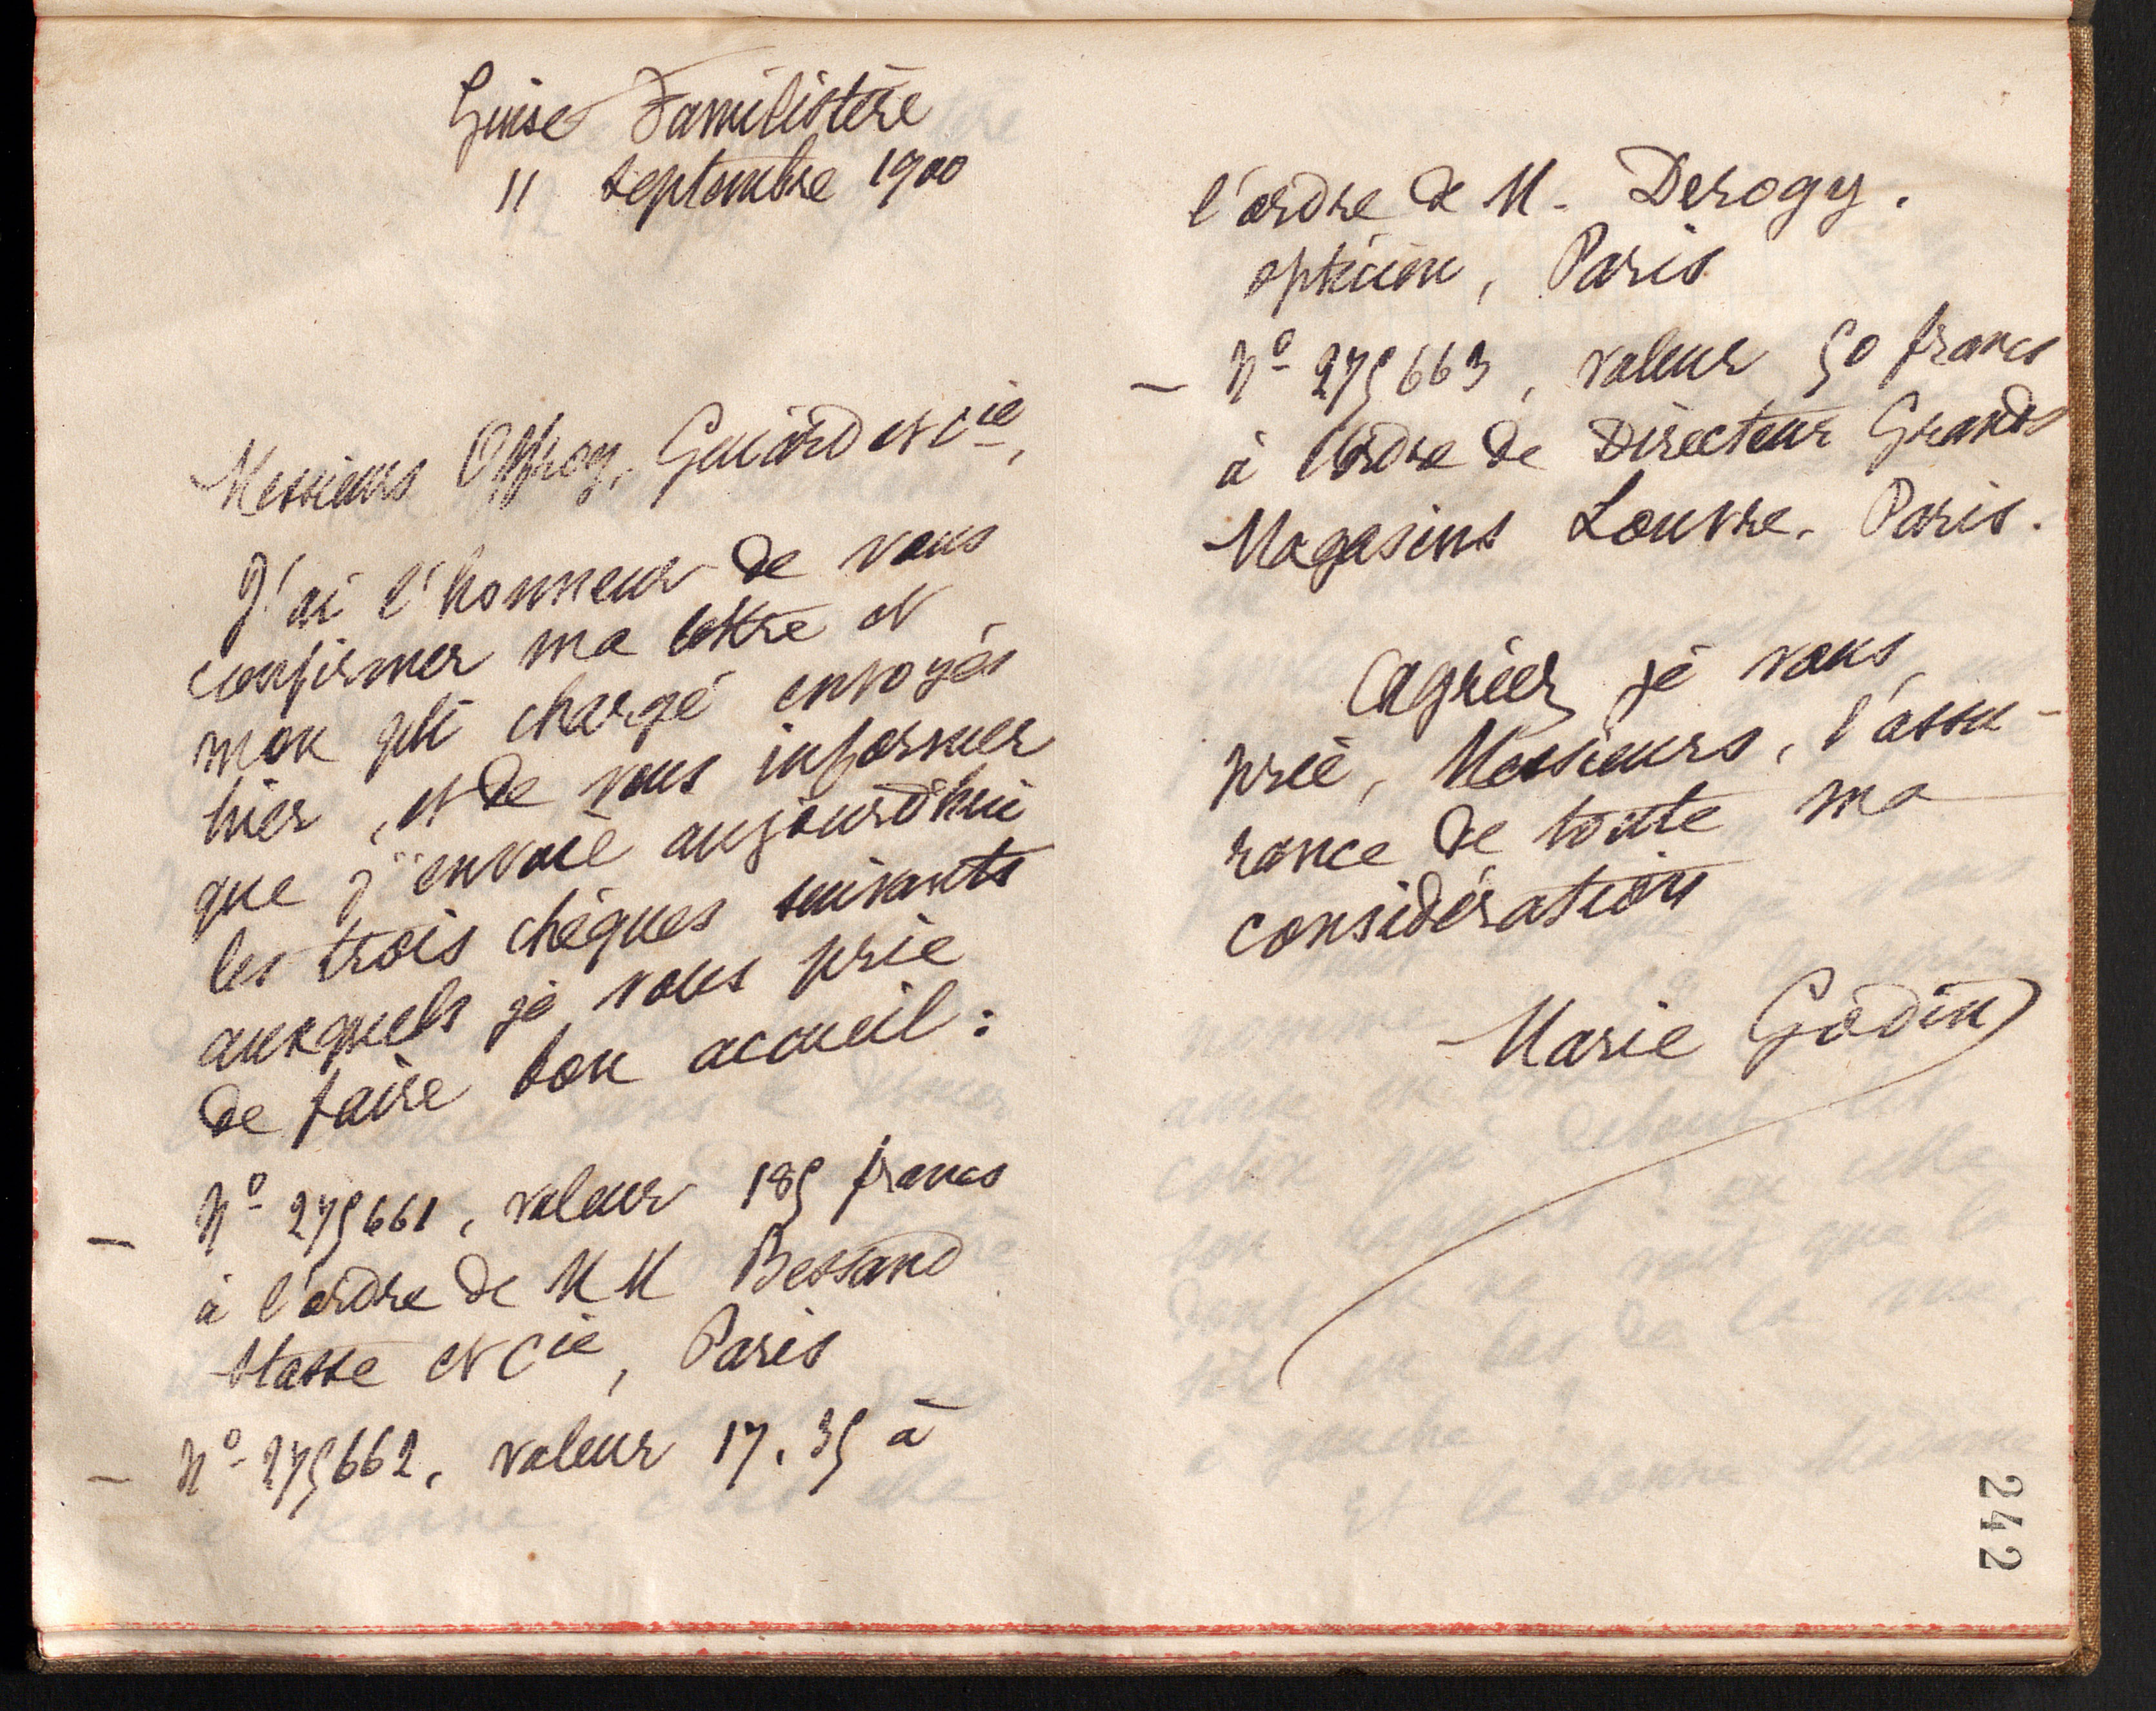 Guise Familistère
11 septembre 1900
Messieurs Offroy, Guiard et Cie,
J'ai l'honneur de vous
confirmer ma lettre et
mon pli chargé envoyés
hier, et de vous informer
que j'envoie aujourd'hui
les trois chèques suivants
auxquels je vous prie
de faire bon accueil :
– No 275661, valeur 185 francs
à l'ordre de MM Bessand
Stasse et Cie, Paris
– No 275662, valeur 17.35 à
l'ordre de M. Derogy.
opticien, Paris
– No 275663, valeur 50 francs
à l'ordre de Directeur Grands
Magasins Louvre. Paris.
Agréez je vous
prie, Messieurs, l'assu-
rance de toute ma
considération
Marie Godin
242